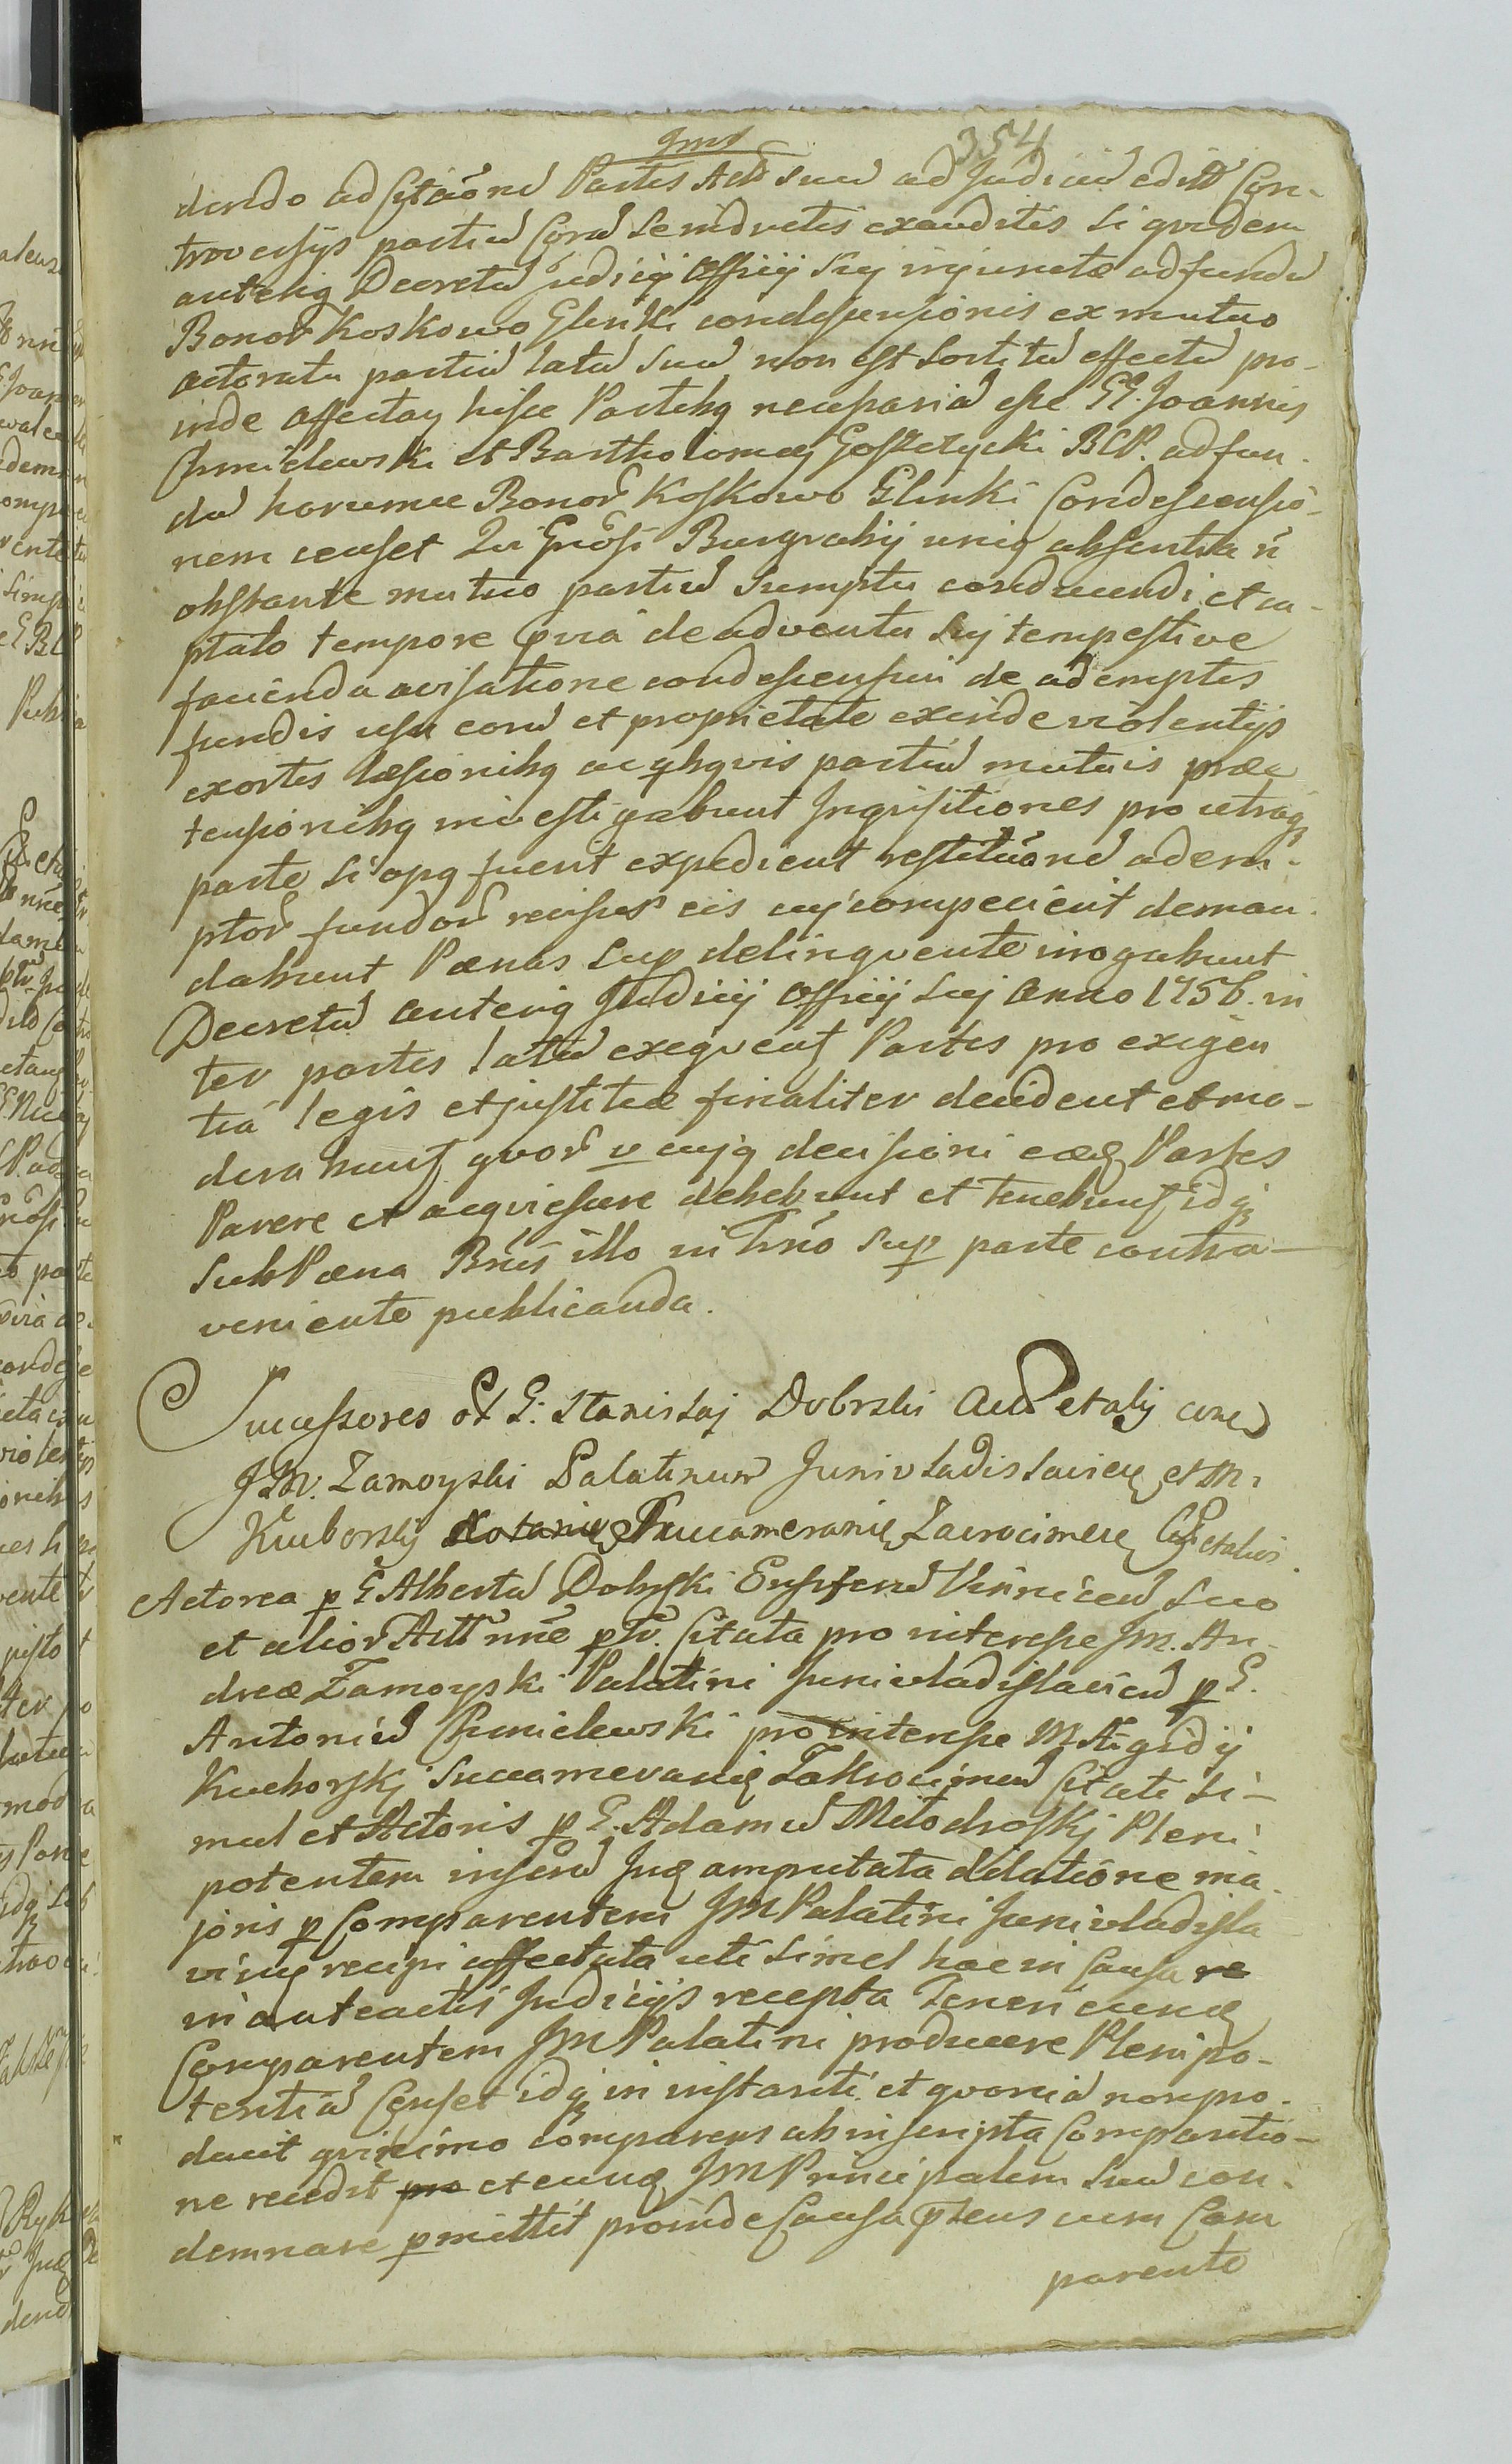 354
dendo ad Citãonẽ Partis Act suũ ad Judiciũ editt Con-
troversiis partiũ Corã se inductis exauditis Siquidem
anterig Decretũ judicij Officij sui injunctæ ad fundũ
Bonoʀ Koskowo Glinki condescensionis ex mutuo
actoratu partiũ latũ suũ non est sortitũ effectũ pro-
inde affectaꝫ hisce Partibꝫ necessariã esse GG. Joannis
Chmielewski et Bartholomæi Gosztzycki BCP. ad fun-
dũ horumce Bonoʀ Koskowo Glinki Condescensio-
nem censet Qui Gnõsi Burgrabij uniꝫ absentia ñ
obstante mutuo partiũ sumptu conducendi et ca-
ptato tempore pviã de adventu sui tempestive
facienda avisatione condescensuri de ademptis
fundis usu eorũ et proprietate exinde violentijs
exortis læsionibꝫ ac qbꝫvis partiũ mutuis præ
tensionibꝫ investigabunt Inqvisitiones pro utraqꝫ
parte si opꝫ fuerit expedient restitũonẽ adem-
ptoʀ fundoʀ eis cuj competierit deman-
dabunt Pænas Sup delinqvente irrogabunt
Decretũ anteriꝫ Judicij Officij sui Anno 1756. in
ter partes latũ exeqventꝫ Partes pro exigen
tiã legis et justitiæ finaliter decident et mo-
derabuntꝫ qvoʀ v cujꝫ decisioni eædꝫ Partes
Parere et acqviescere debebunt et tenebuntꝫ idqꝫ
Sub Pæna Bnis illo in Tnõ Sup parte contra-
veniente publicanda.
Successores ol G: Stanislaj Dobrski Act et alij cum
JM. Zamoyski Palatinum Junivladislavien et M.
Kuborskj Succamerariũ Zacrocimen Cit et alios
Actorea p G Albertũ Dobrski Ensiferũ Vinnicen suo
et alioʀ Actt nne ptr. Citata pro interesse JM. An-
dreæ Zamoyski Palatini Junivladislavien p G.
Antoniũ Chmielewski pro interesse M. Ægidij
Kuchorskj Succamerarij Zakrocimen Citati Si-
mul et Actoris p G. Adamũ Młodroskj Pleni
potentem Jud amputata dilatione ma-
joris p Comparentem JM Palatini Junivladisla
vien recipi affectata uti Simel hac in Causa
in anteactis Judicijs recepta Teneri eundꝫ
Comparentem JM Palatini producere Plenipo-
tentiã Censet idqꝫ in instanti et qvoniã non pro-
ducit qvinimo comparens ab inscripta Comparitio-
ne recedit et eundꝫ JM Principalem Suũ con-
demnare pmittit proinde Causa ptens cum Com
parente